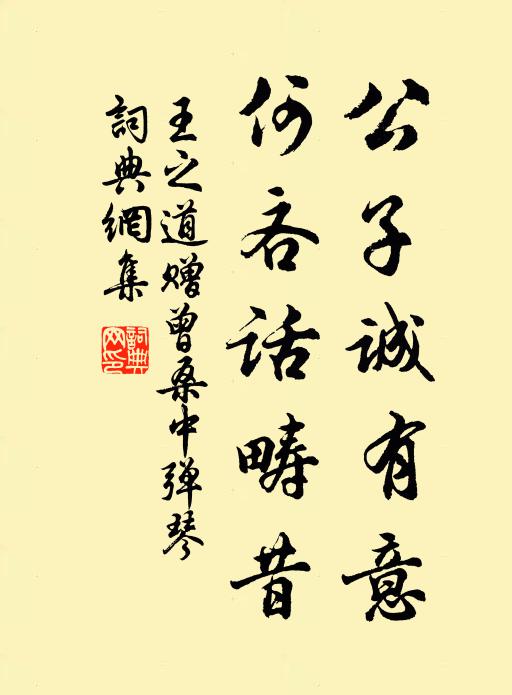 公子诚有意
何吝话畴昔
王之道赠曾桑中弹琴
詞典網集
詞典网印